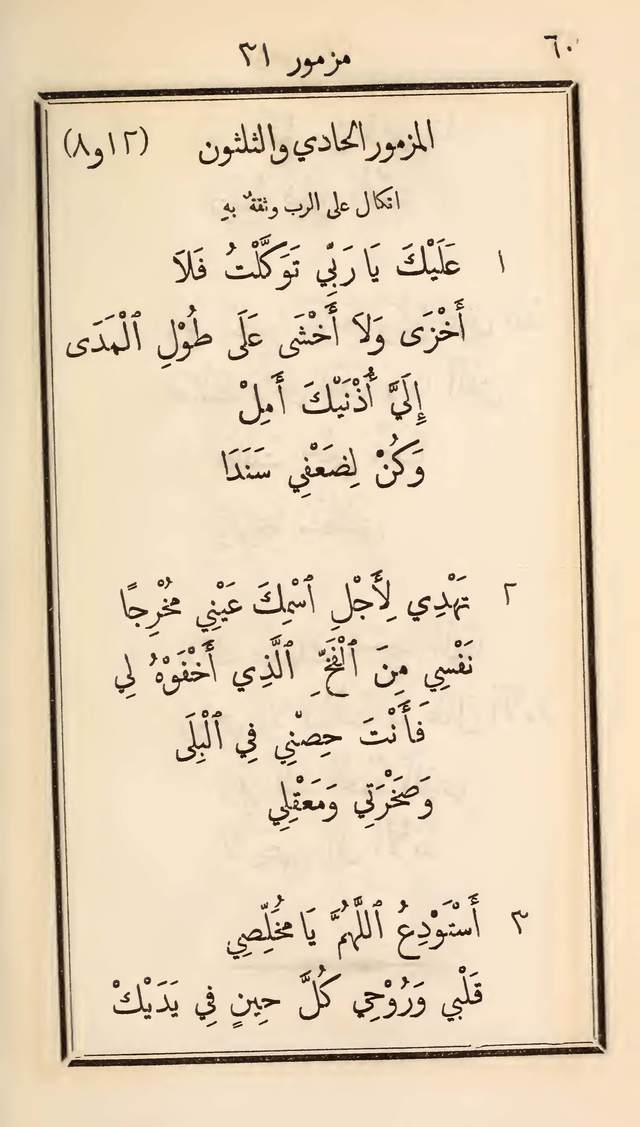 ٦٠
مزمور ٣١
المزمور الحادي والثلثون (١٢ و٨)
اتكال على الرب وثقةٌ بهِ
١ عَلَيْكَ يَا رَبِّي تَوَكَّلْتُ فَلاَ
أَخْزَى وَلاَ أَخْشَى عَلَى طُوْلِ ٱلْمَدَى
إِلَيَّ أُذْنَيْكَ أَمِلْ
وَكُنْ لِضَعْفِي سَنَدَا
٢ تَهْدِي لِأَجْلِ ٱسْمِكَ عَيْنِي مُخْرِجًا
نَفْسِي مِنَ ٱلْفَخِّ ٱلَّذِي أَخْفَوْهُ لِي
فَأَنْتَ حِصْنِي فِي ٱلْبِلَى
وَصَخْرَتِي وَمَعْقِلِي
٣ أَسْتَوْدِعُ ٱللَّهُمَّ يَا مُخَلِّصِي
قَلْبِي وَرُوْحِي كُلَّ حِينٍ فِي يَدَيْكْ